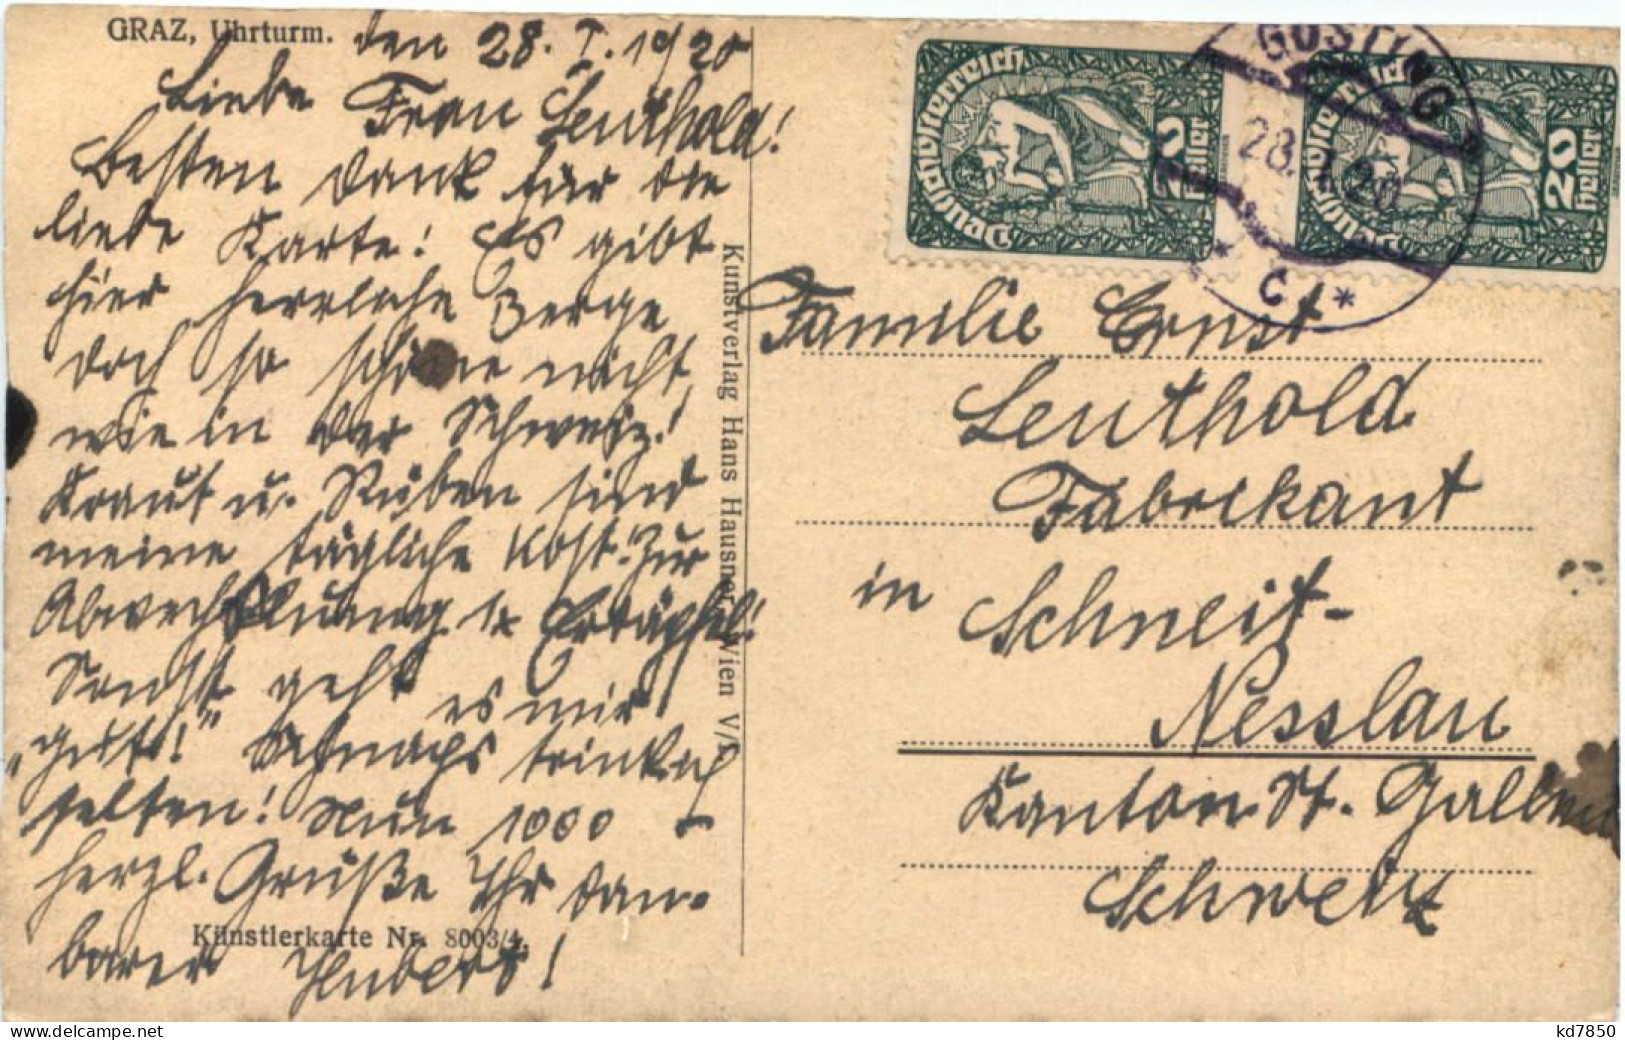 GRAZ, Uhrturm.
den 28. I. 1920
Liebe Frau Leuthold!
Besten Dank für die
liebe Karte! Es gibt
hier herrliche Berge
doch so schöne nicht,
wie in der Schweiz!
Kraut u. Rüben sind
meine tägliche Kost! Zur
Abwechslung 1x Erdäpfel!
Sonst geht es mir
"gut!" Schnaps trink ich
selten! Nun 1000
herzl. Grüße Ihr dan-
barer Hubert!
Künstlerkarte Nr. 8003/4.
Kunstverlag Hans Hausner, Wien V/1
Deutschösterreich
20
heller
Deutschösterreich
20
heller
GÖSTING
28. I. 20
* C *
Familie Ernst
Leuthold
Fabrikant
in Schneit-
Nesslau
Kanton St. Gallen
Schweiz
kd7850